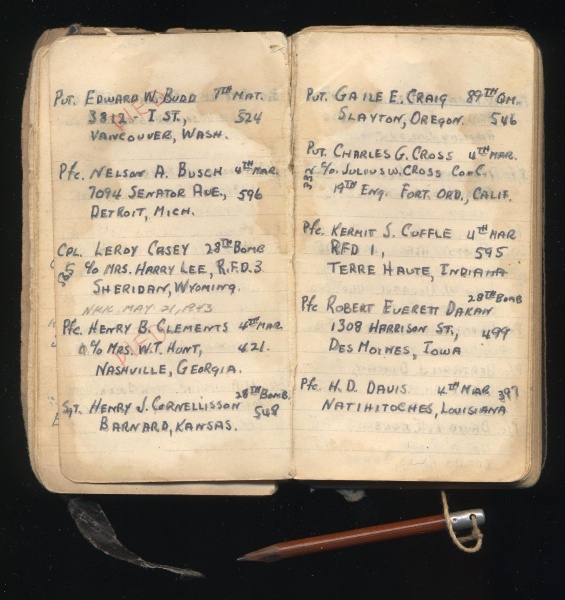 PVT. EDWARD W. BUDD 7TH MAT.
3812 - I ST., 524
VANCOUVER, WASH.
DIED
Pfc. NELSON A. BUSCH 4TH MAR.
7094 SENATOR AVE., 596
DETROIT, MICH.
CPL. LEROY CASEY 28TH BOMB
c/o MRS. HARRY LEE, R.F.D. 3
SHERIDAN, WYOMING.
MAY 21, 1943
Pfc. HENRY B. CLEMENTS 4TH MAR.
c/o MRS. W.T. HUNT, 421.
NASHVILLE, GEORGIA.
SGT. HENRY J. CORNELLISSON 28TH BOMB.
BARNARD, KANSAS. 548
PVT. GAILE E. CRAIG 89TH QM.
SLAYTON, OREGON. 546
PVT. CHARLES G. CROSS 4TH MAR.
332 c/o. JULIUS W. CROSS CO. C.
19TH ENG. FORT. ORD., CALIF.
Pfc. KERMIT S. CUFFLE 4TH MAR
RFD 1, 595
TERRE HAUTE, INDIANA
Pfc ROBERT EVERETT DAKAN 28TH BOMB
1308 HARRISON ST., 499
DES MOINES, IOWA
Pfc. H.D. DAVIS 4TH MAR 397
NATIHITOCHES, LOUISIANA